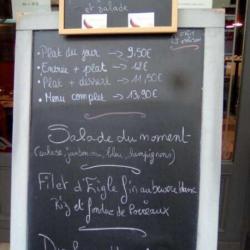 et salade
• Plat du jour → 9,50€
• Entrée + plat → 12€
• Plat + dessert → 11,50€
• Menu complet → 13,90€
Salade du moment
jambon bleu, champignons)
Filet d'Eigle fin au beurre blanc
Riz et fondue de Poireaux